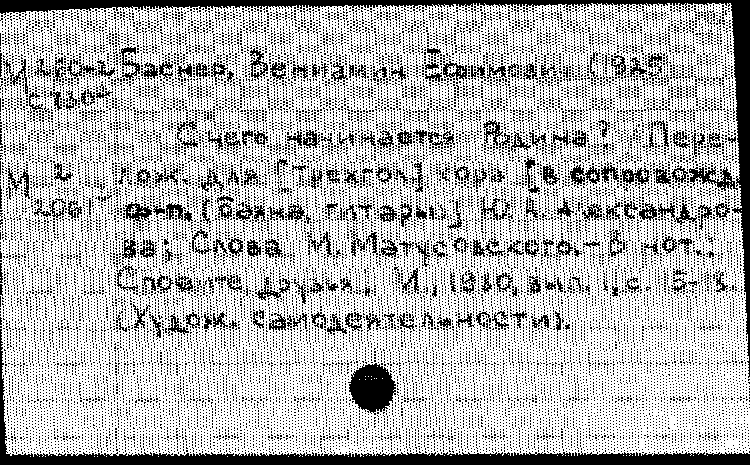 Баснер, Вениамин Ефимович (1925
С чего начинается Родина? Пере-
лож. для [Трехгол] хора [в сопровожд.
ф-п. (баяна, гитары)] Ю. А. Александро-
ва; Слова М. Матусовского. - В нот.:
Споемте друзья, М., 1980, вып. 1, с. 15-18.
(Худож. самодеятельности).